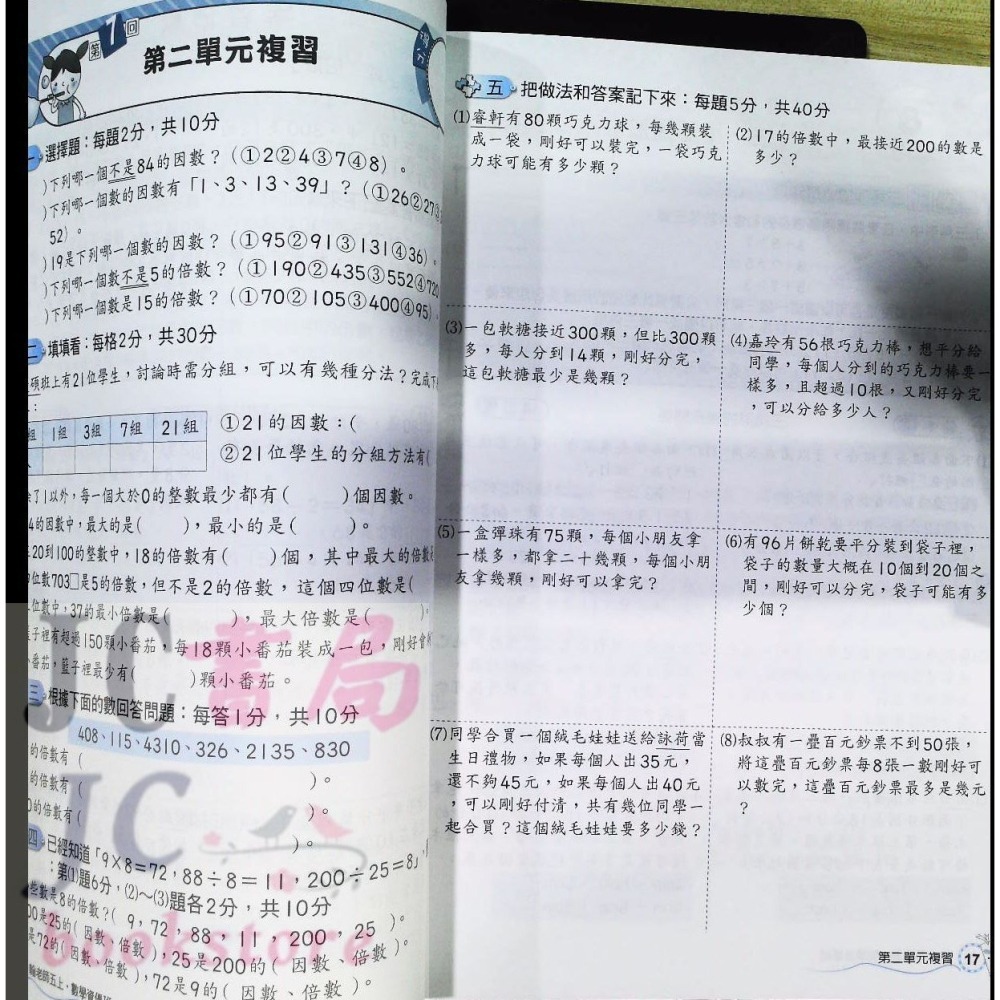 第1回
第二單元複習
得分
一 選擇題：每題2分，共10分
)下列哪一個不是84的因數？（①1②2④3⑦4⑧）。
)下列哪一個數的因數有「1、3、13、39」？（①26②27③
52）。
)19是下列哪一個數的因數？（①95②91③131④36）。
)下列哪一個數不是5的倍數？（①190②435③552④720
)下列哪一個數是15的倍數？（①70②105③400④95）。
二 填填看：每格2分，共30分
碩班上有21位學生，討論時需分組，可以有幾種分法？完成下
組 1組 3組 7組 21組
①21的因數：(
②21位學生的分組方法有(
了1以外，每一個大於0的整數最少都有( )個因數。
4的因數中，最大的是( )，最小的是( )。
20到100的整數中，18的倍數有( )個，其中最大的倍數
位數703□是5的倍數，但不是2的倍數，這個四位數是(
位數中，37的最小倍數是( )，最大倍數是( )。
籃子裡有超過150顆小番茄，每18顆小番茄裝成一包，剛好會
小番茄，籃子裡最少有( )顆小番茄。
三 根據下面的數回答問題：每答1分，共10分
408、115、4310、326、2135、830
的倍數有( )。
的倍數有( )。
0的倍數有( )。
四 已經知道「9×8＝72，88÷8＝11，200÷25＝8」，
：第(1)題6分，(2)～(3)題各2分，共10分
些數是8的倍數？( 9，72，88，11，200，25 )。
00是25的( 因數、倍數 )，25是200的( 因數、倍數 )。
是72的( 因數、倍數 )，72是9的( 因數、倍數 )。
JC書局
JC
bookstore
五 把做法和答案記下來：每題5分，共40分
(1)睿軒有80顆巧克力球，每幾顆裝
成一袋，剛好可以裝完，一袋巧克
力球可能有多少顆？
(2)17的倍數中，最接近200的數是
多少？
(3)一包軟糖接近300顆，但比300顆
多，每人分到14顆，剛好分完，
這包軟糖最少是幾顆？
(4)嘉玲有56根巧克力棒，想平分給
同學，每個人分到的巧克力棒要一
樣多，且超過10根，又剛好分完
，可以分給多少人？
(5)一盒彈珠有75顆，每個小朋友拿
一樣多，都拿二十幾顆，每個小朋
友拿幾顆，剛好可以拿完？
(6)有96片餅乾要平分裝到袋子裡，
袋子的數量大概在10個到20個之
間，剛好可以分完，袋子可能有多
少個？
(7)同學合買一個絨毛娃娃送給詠荷當
生日禮物，如果每個人出35元，
還不夠45元，如果每個人出40元
，可以剛好付清，共有幾位同學一
起合買？這個絨毛娃娃要多少錢？
(8)叔叔有一疊百元鈔票不到50張，
將這疊百元鈔票每8張一數剛好可
以數完，這疊百元鈔票最多是幾元
？
第二單元複習 17